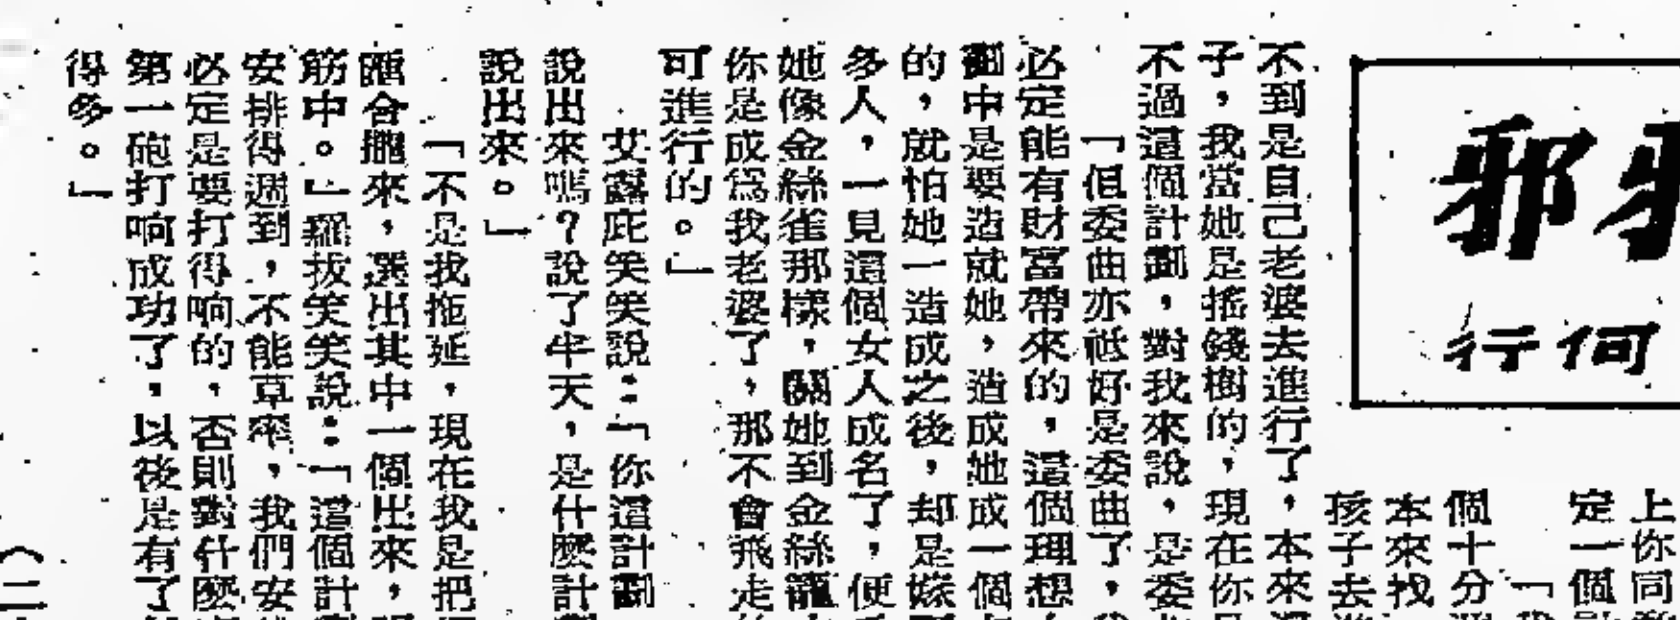 上你同
定一個
個十分
本來找
孩子去
邪
何行
不到是自己老婆去進行了，本來還
子，我當她是搖錢樹的，現在你是
不過這個計劃，對我來說，是委
「但委曲亦祗好是委曲了，我
必定能有財富帶來的，這個理想
劃中是要造就她，造成她成一個
的，就怕她一造成之後，却是嫁
多人，一見這個女人成名了，便
她像金絲雀那樣，關她到金絲籠
你是成爲我老婆了，那不會飛走
可進行的。」
艾露庇笑笑說：「你這計劃
說出來嗎？說了半天，是什麼計
說出來。」
「不是我拖延，現在我是把
匯合攏來，選出其中一個出來，
筋中。」羅拔笑笑說：「這個計
安排得週到，不能草率，我們安
必定是要打得响的，否則對什麼
第一砲打响成功了，以後是有了
得多。」
（二